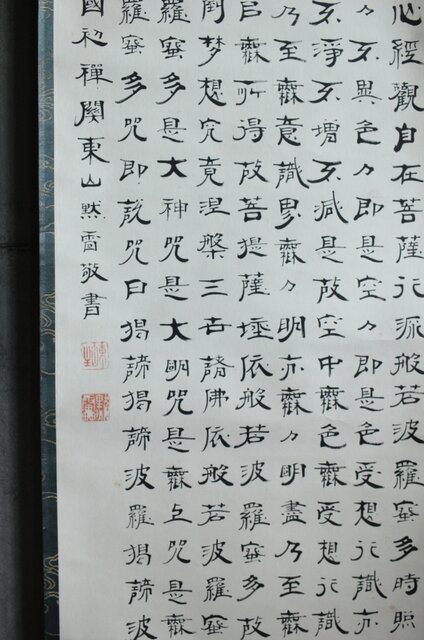 心經觀自在菩薩行深般若波羅蜜多時照
々不異色々即是空々即是色受想行識亦
不淨不增不減是故空中無色無受想行識
乃至無意識界無々明亦無々明盡乃至無
以無所得故菩提薩埵依般若波羅蜜多故
倒梦想究竟涅槃三世諸佛依般若波羅蜜
羅蜜多是大神咒是大明咒是無上咒是無
羅蜜多咒即說咒曰揭諦揭諦波羅揭諦波
國初禪關東山默雷敬書